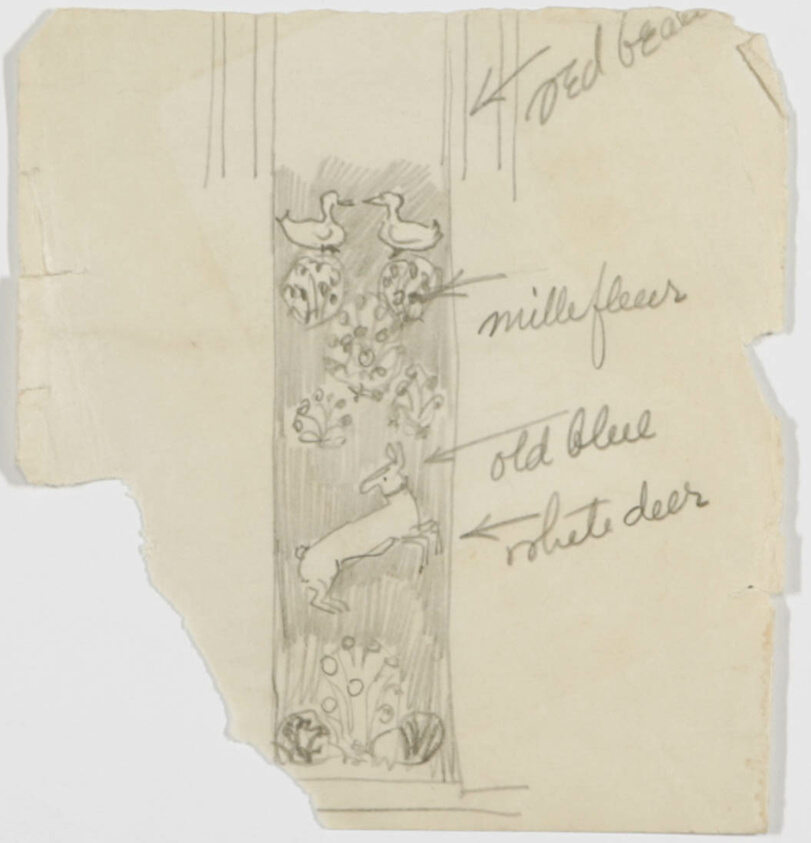 red beam
millefleur
old blue
white deer